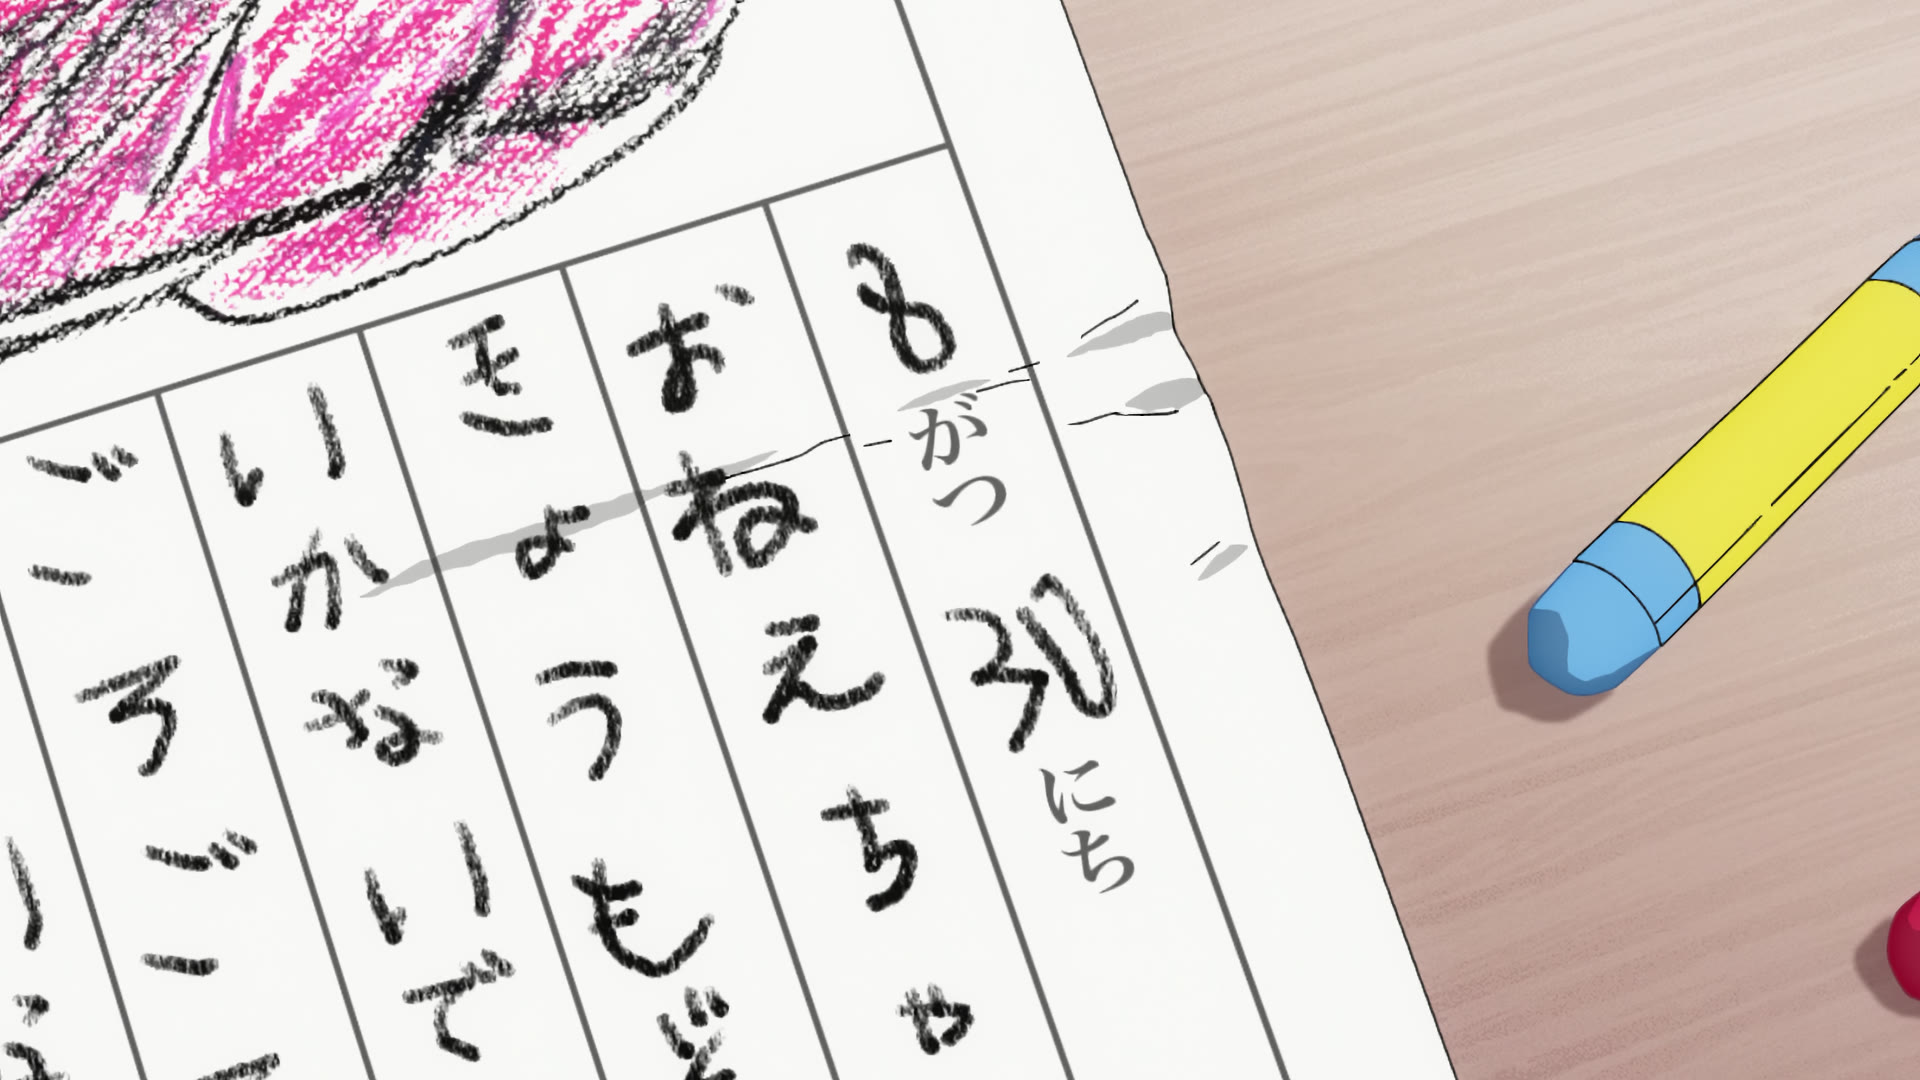 8がつ30にち
おねえちゃ
きょうも
いかないで
ごろご